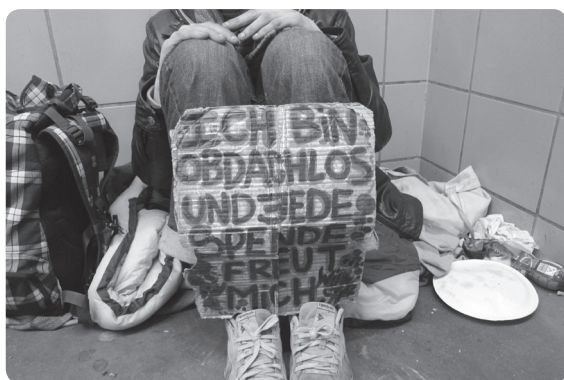 ICH BIN
OBDACHLOS
UND JEDE
SPENDE
FREUT
MICH